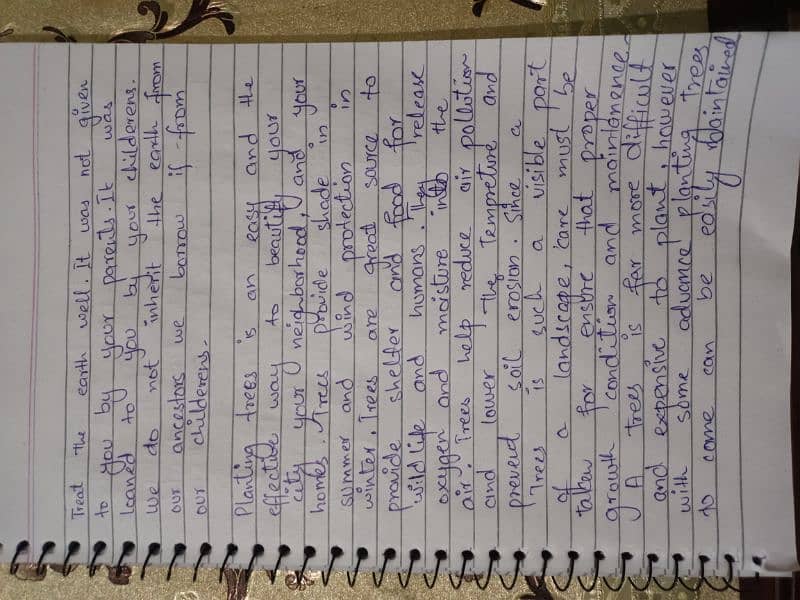 Treat the earth well. It was not given
to you by your parents. It was
loaned to you by your childerens.
We do not inherit the earth from
our ancestors we borrow if from
our childerens.
Planting trees is an easy and the
effective way to beautify your
city your neighborhood, and your
homes. Trees provide shade in
summer and wind protection in
winter. Trees are great source to
provide shelter and food for
wildlife and humans. They release
oxygen and moisture into the
air. Trees help reduce air pollution
and lower the Tempreture and
prevent soil erosion. Since a
Trees is such a visible part
of a landscape, care must be
taken for ensure that proper
growth condition and maintanence.
A trees is far more difficult
and expensive to plant, however
with some advance planting trees
to come can be easily Maintained